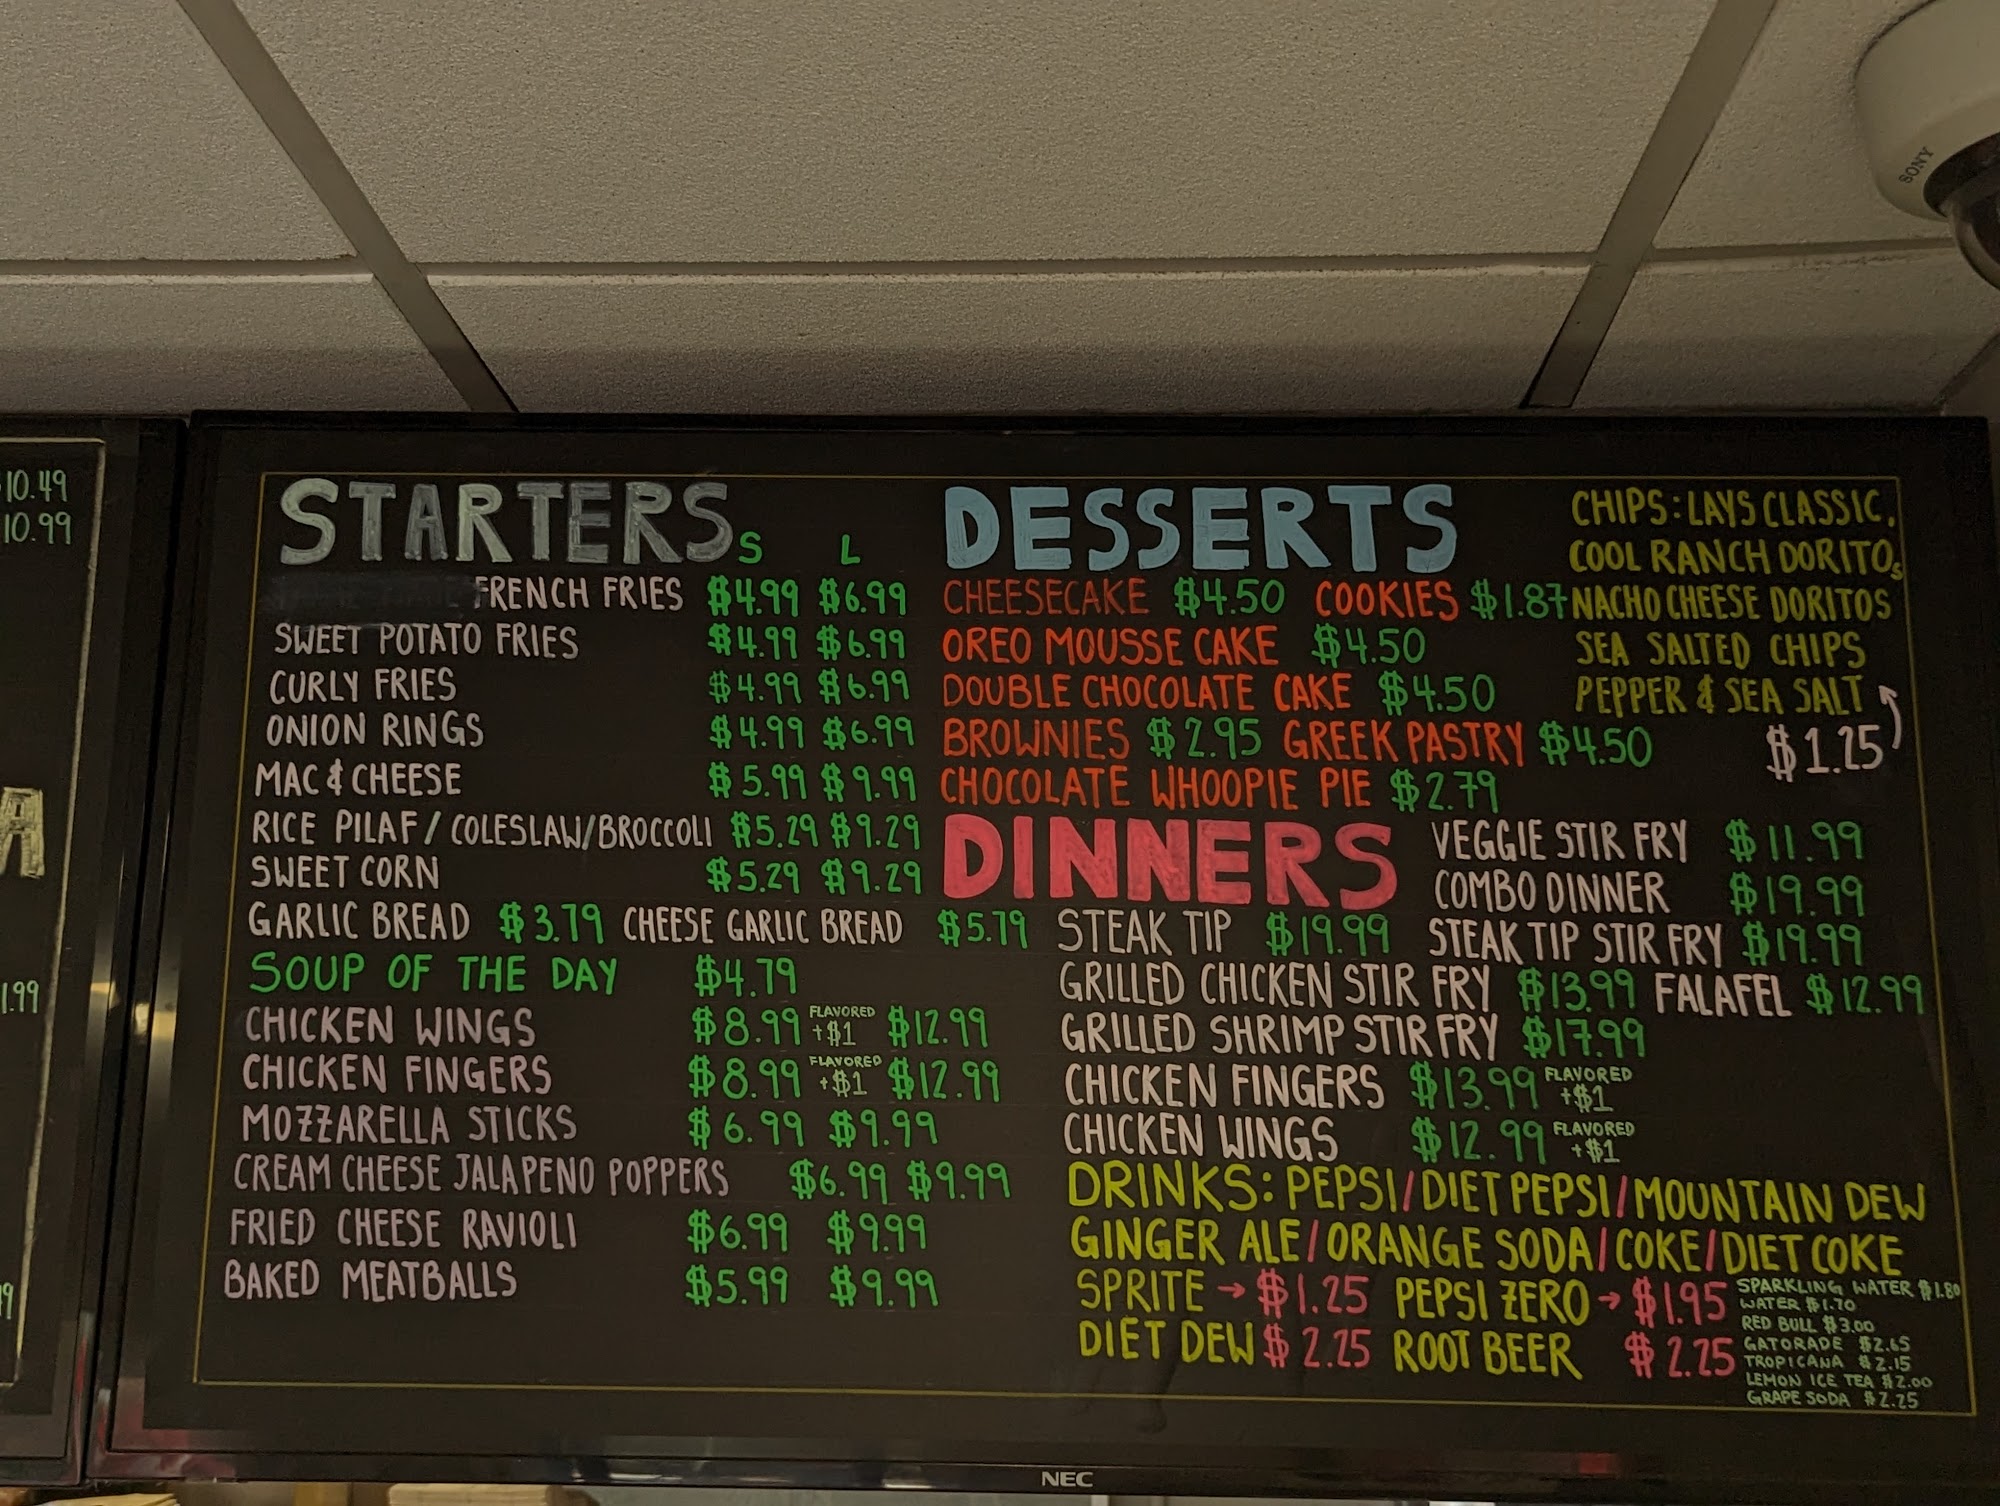 10.49
10.99
A
1.99
SONY
STARTERS
S L
FRENCH FRIES $4.99 $6.99
SWEET POTATO FRIES $4.99 $6.99
CURLY FRIES $4.99 $6.99
ONION RINGS $4.99 $6.99
MAC & CHEESE $5.99 $9.99
RICE PILAF / COLESLAW/BROCCOLI $5.29 $9.29
SWEET CORN $5.29 $9.29
GARLIC BREAD $3.79 CHEESE GARLIC BREAD $5.79
SOUP OF THE DAY $4.79
CHICKEN WINGS $8.99 FLAVORED +$1 $12.99
CHICKEN FINGERS $8.99 FLAVORED +$1 $12.99
MOZZARELLA STICKS $6.99 $9.99
CREAM CHEESE JALAPENO POPPERS $6.99 $9.99
FRIED CHEESE RAVIOLI $6.99 $9.99
BAKED MEATBALLS $5.99 $9.99
DESSERTS
CHEESECAKE $4.50 COOKIES $1.87
OREO MOUSSE CAKE $4.50
DOUBLE CHOCOLATE CAKE $4.50
BROWNIES $2.95 GREEK PASTRY $4.50
CHOCOLATE WHOOPIE PIE $2.79
CHIPS: LAYS CLASSIC,
COOL RANCH DORITOS
NACHO CHEESE DORITOS
SEA SALTED CHIPS
PEPPER & SEA SALT
$1.25
DINNERS
VEGGIE STIR FRY $11.99
COMBO DINNER $19.99
STEAK TIP $19.99 STEAK TIP STIR FRY $19.99
GRILLED CHICKEN STIR FRY $13.99 FALAFEL $12.99
GRILLED SHRIMP STIR FRY $17.99
CHICKEN FINGERS $13.99 FLAVORED +$1
CHICKEN WINGS $12.99 FLAVORED +$1
DRINKS: PEPSI/DIET PEPSI/MOUNTAIN DEW
GINGER ALE/ORANGE SODA/COKE/DIET COKE
SPRITE → $1.25 PEPSI ZERO → $1.95
DIET DEW $2.25 ROOT BEER $2.25
SPARKLING WATER $1.80
WATER $1.70
RED BULL $3.00
GATORADE $2.65
TROPICANA $2.15
LEMON ICE TEA $2.00
GRAPE SODA $2.25
NEC